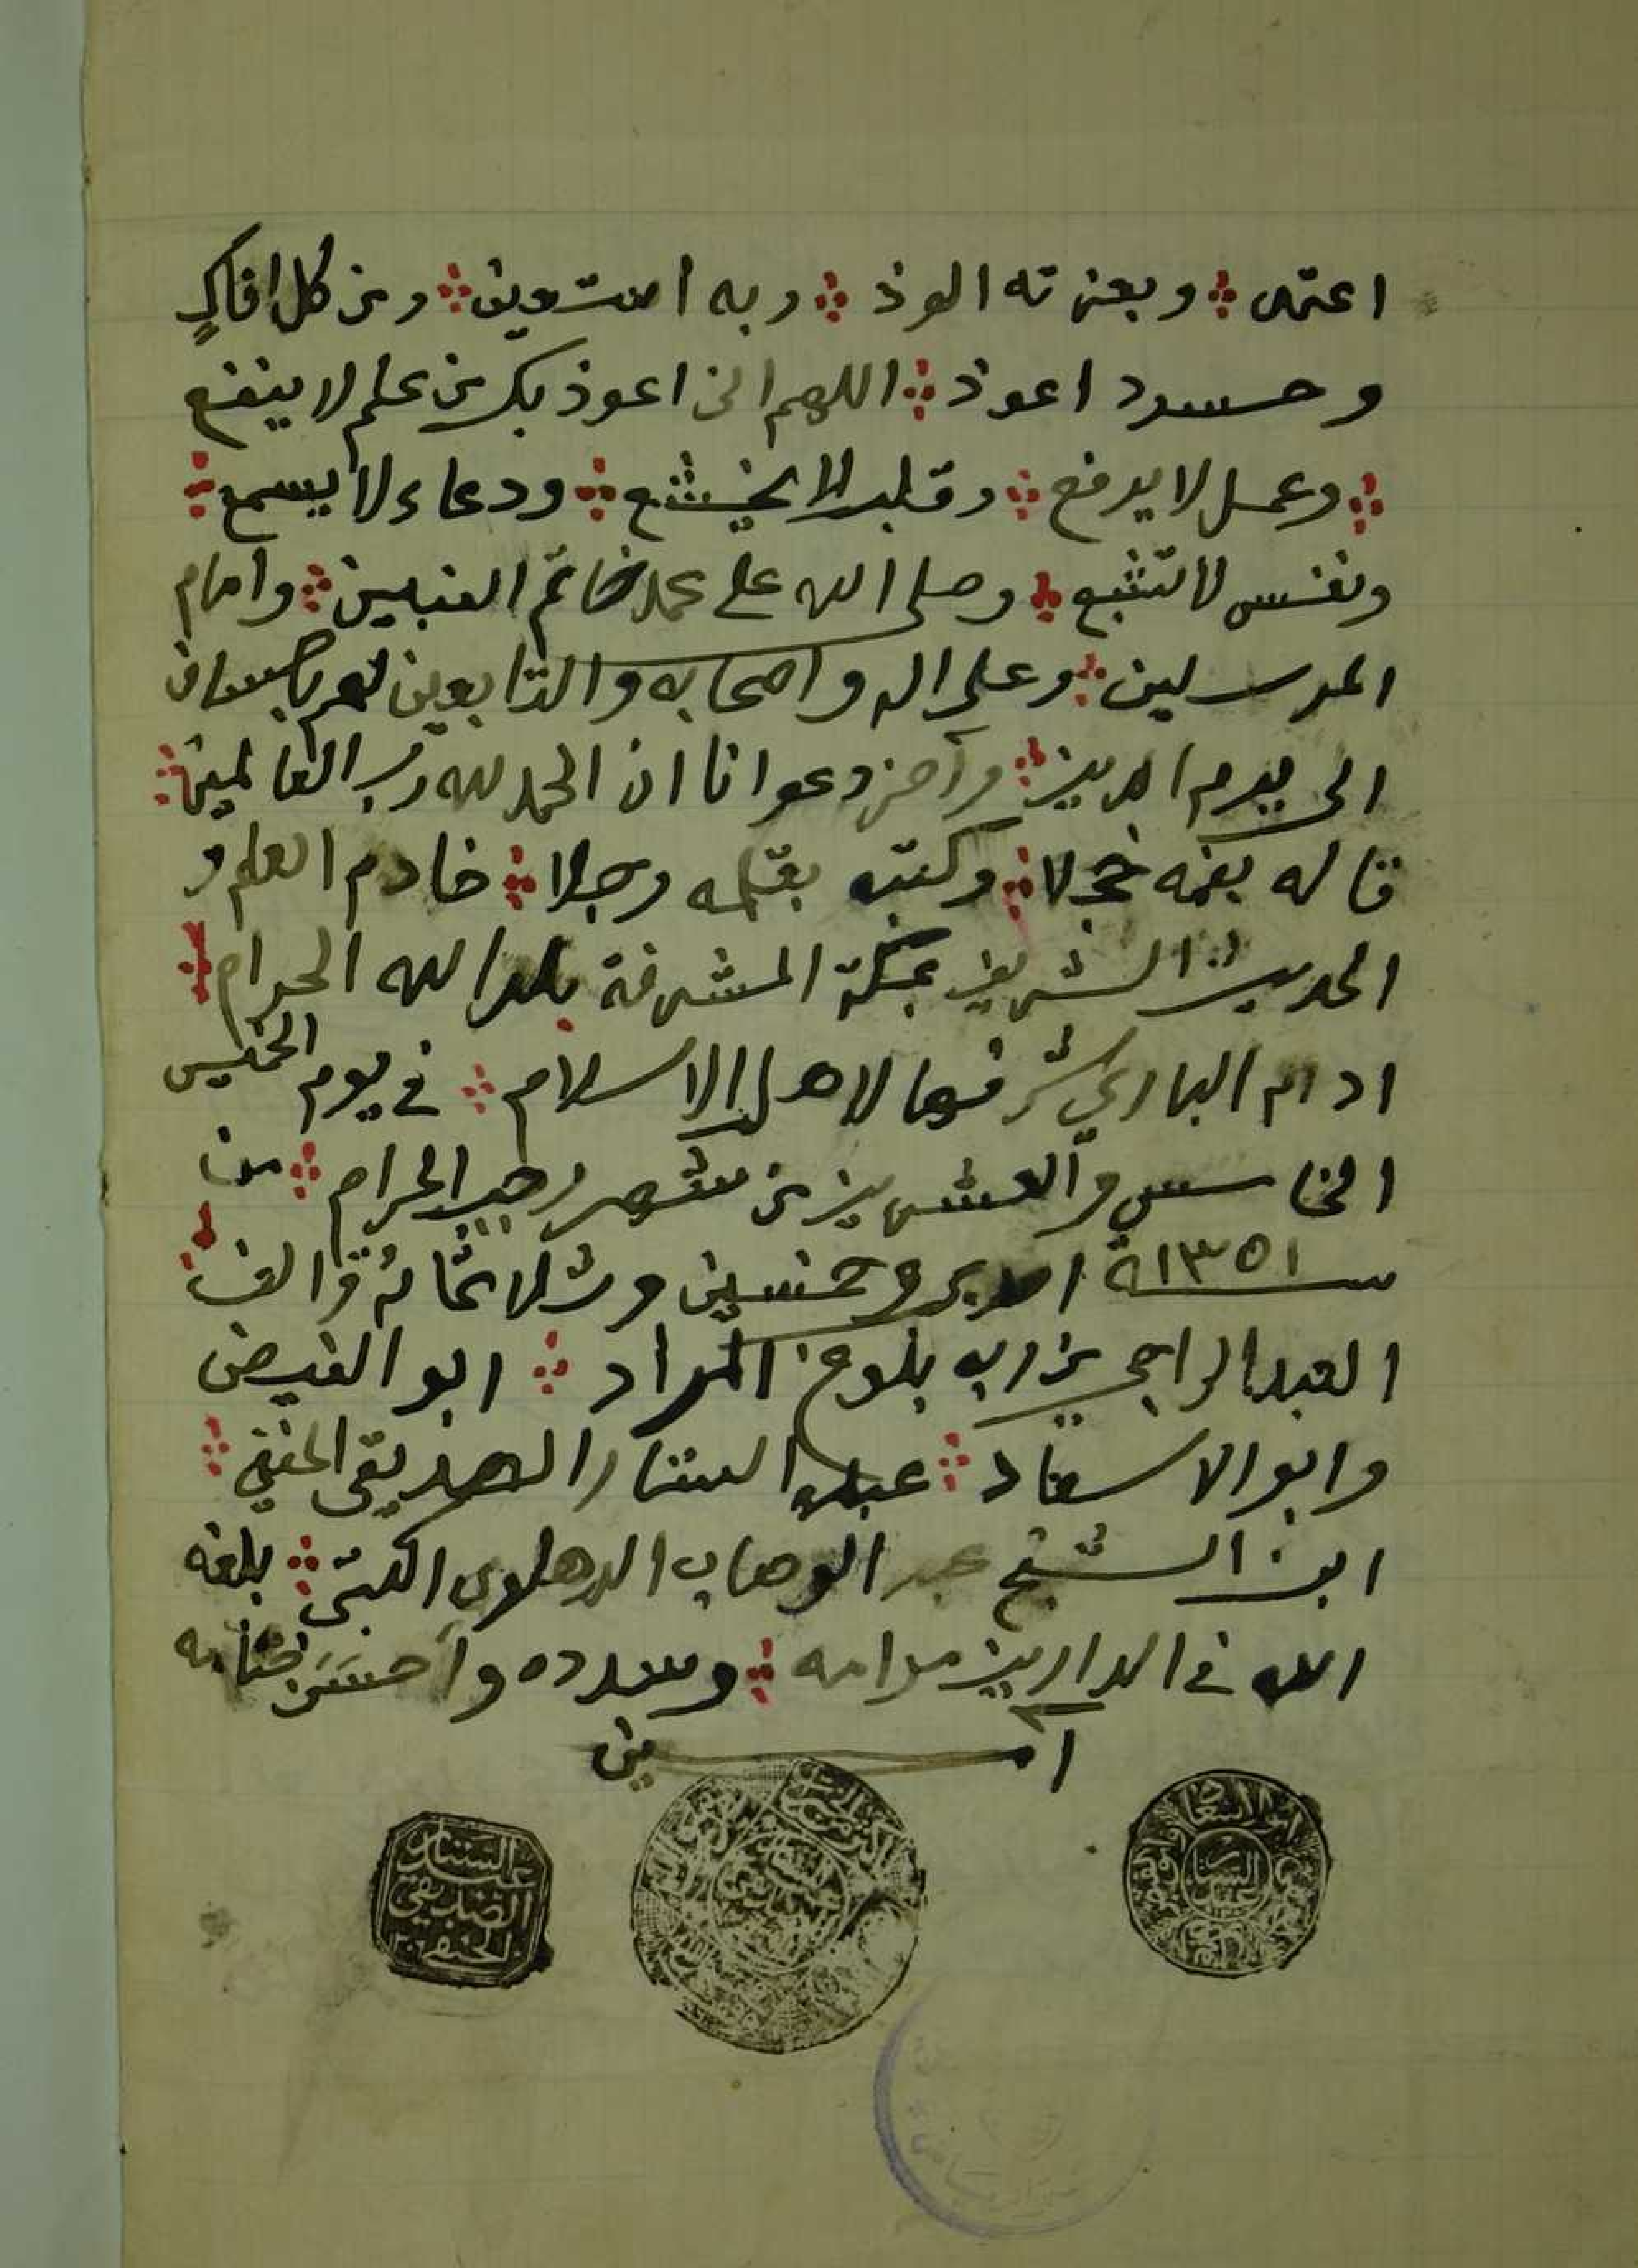 اعتمد وبعزته الوذ وبه استعين ومن كل افاكٍ
وحسود اعوذ اللهم اني اعوذ بك من علم لا ينفع
وعمل لا يرفع وقلب لا يخشع ودعاء لا يسمع
ونفس لا تشبع وصلى الله على محمد خاتم النبيين وامام
المرسلين وعلى اله واصحابه والتابعين لهم باحسان
الى يوم الدين وآخر دعوانا ان الحمد لله رب العالمين
قاله بفمه خجلا وكتبه بقلمه وجلا خادم العلم و
الحديث الشريف بمكة المشرفة بلد الله الحرام
ادام الباري شرفها لاهل الاسلام في يوم الخميس
الخامس والعشرين من شهر رجب الحرام من
سنة ١٣٥١ احدى وخمسين وثلاثمائة والف
العبد الراجي من ربه بلوغ المراد ابو الفيض
وابو الاسعاد عبد الستار الصديقي الحنفي
ابن الشيخ عبد الوهاب الدهلوي الكتبي بلغه
الله في الدارين مرامه وسدده وأحسَنَ ختامه
آمين
عبد الستار
الصديقي
الحنفي